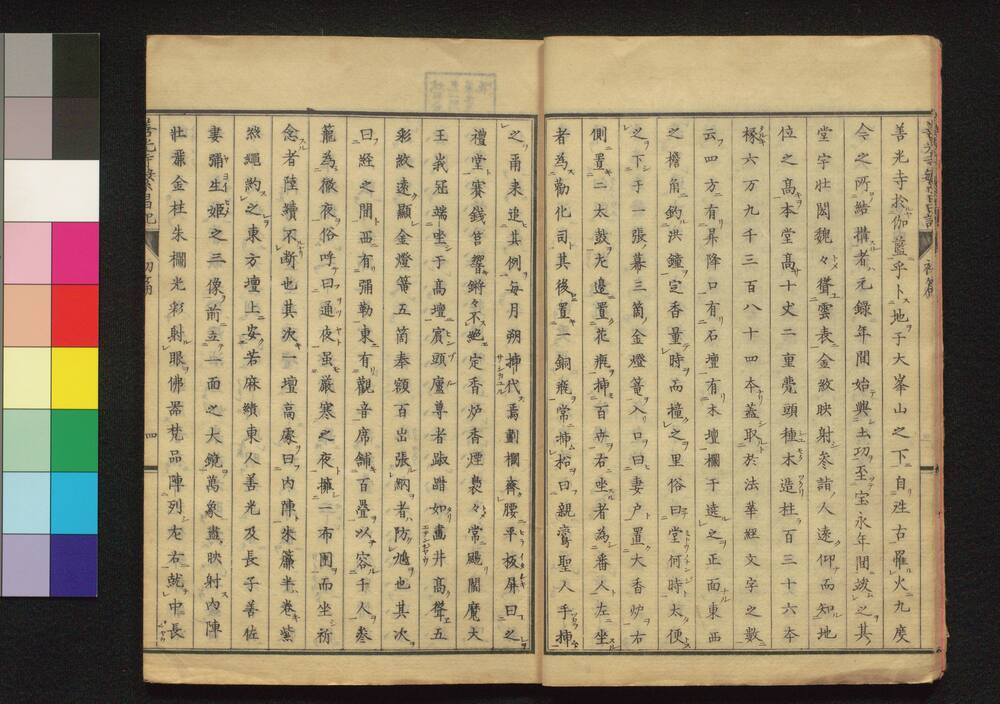 善光寺於伽藍乎卜地于大峯山之下自往古罹火九度
今之所結搆者元錄年間始興土功至宝永年間竣之其
堂宇壯閎巍々聳雲表金紋映射參詣人遠仰而知地
位之高本堂高十丈二重甍頭種木造柱百三十六本
椽六万九千三百八十四本蓋取於法華經文字之數
云四方有昇降口有石壇有木壇欄干遶之正面東西
之檐角釣洪鐘定香量時而撞之里俗曰堂何時太便
之下于一張幕三箇金燈篭入口曰妻户置大香炉右
側置二太鼓左邊置花瓶揷百卉右坐者為番人左坐
者為勤化司其後置二銅瓶常揷松曰親鸞聖人手揷
之爾来追其例每月朔揷代焉劃欄齊腰平板屏曰之
禮堂賽錢筥響鏘々不絶定香炉香煙裊々常颺閻魔大
王峩冠端坐于高壇賓頭廬尊者踞跗如畵井高聳五
彩紋遠顯金燈篭五箇奉額百出張網者防鳩也其次
曰経之間西有彌勒東有觀音席舖百疊以容千人參
籠為徹夜俗呼曰通夜虽嚴寒之夜擁一布團而坐祈
念者陸續不断也其次一壇高處曰内陣朱簾半卷紫
㷌繩約之東方壇上安若麻績東人善光及長子善佐
妻彌生姬之三像前立一面之大鏡萬象盡映射内陣
壯麗金柱朱欄光彩射眼佛器梵品陣列左右就中長
善光寺繁昌記
初篇
四